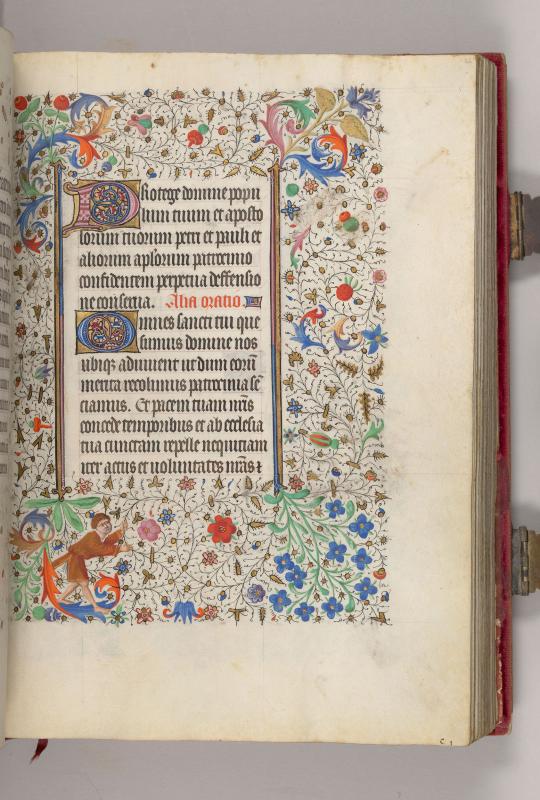 Protege domine popu
lum tuum et aposto
lorum tuorum petri et pauli et
aliorum aplorum patrocinio
confidentem perpetua deffensio
ne conserua. Alia oratio.
Omnes sancti tui que
sumus domine nos
ubiqz adiuuent ut dum eorū
merita recolimus patrocinia sē
ciamus. Et pacem tuam nrīs
concede temporibus et ab ecclesia
tua cunctam repelle nequitiam
iter actus et uoluntates nrās ⁊
c 1